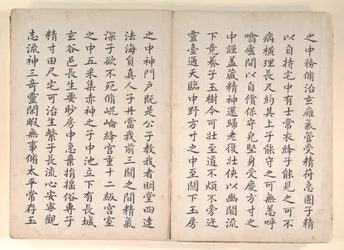 之中務脩治玄膺氣管受精符急固子精
以自持宅中有士常衣絳子能見之可不
病橫理長尺約其上子能守之可無恙呼
噏廬間以自償保守完堅身受慶方寸之
中謹蓋藏精神還歸老復壯俠以幽闕流
下竟養子玉樹令可壯至道不煩不旁迕
靈臺通天臨中野方寸之中至關下玉房
之中神門戶既是公子教我者明堂四達
法海員真人子丹當我前三關之間精氣
深子欲不死脩崐崘絳宮重十二級宮室
之中五采集赤神之子中池立下有長城
玄谷邑長生要眇房中急棄捐搖俗專子
精寸田尺宅可治生繫子長流心安寧觀
志流神三奇靈閒暇無事脩太平常存玉